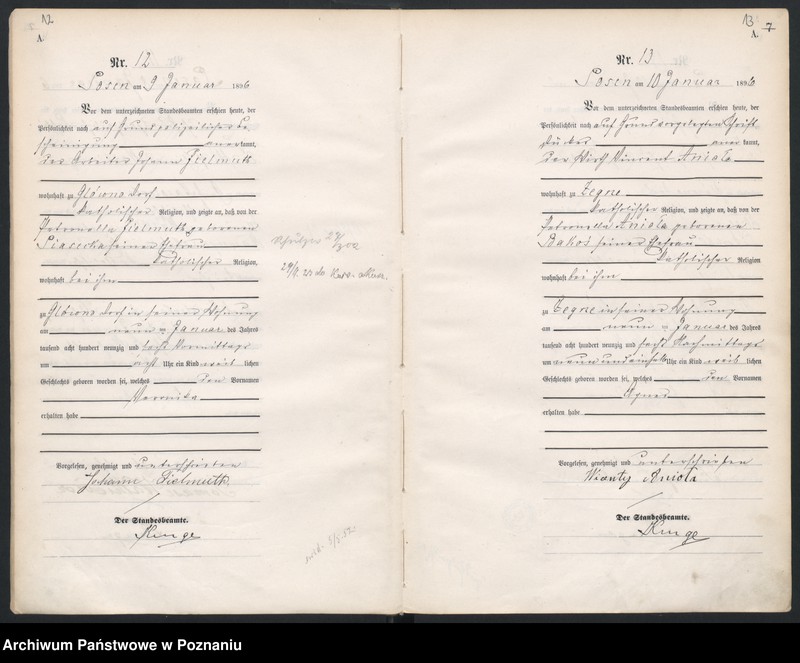 12
A.
Nr. 12
Posen am 9 Januar 1896
Vor dem unterzeichneten Standesbeamten erschien heute, der
Persönlichkeit nach auf Grund polizeilicher Be-
scheinigung anerkannt,
der Arbeiter Johann Fielmuth
wohnhaft zu Glówno Dorf
katholischer Religion, und zeigte an, daß von der
Petronella Fielmuth geborenen
seiner Ehefrau
katholischer Religion,
wohnhaft bei ihm
zu Glówno Dorf in seiner Wohnung
am neun ten Januar des Jahres
tausend acht hundert neunzig und sechs Vormittags
um acht Uhr ein Kind weib lichen
Geschlechts geboren worden sei, welches den Vornamen
Veronika
erhalten habe
Vorgelesen, genehmigt und unterschrieben
Johann Fielmuth
Der Standesbeamte.
13
7
A.
Nr. 13
Posen am 10 Januar 1896
Vor dem unterzeichneten Standesbeamten erschien heute, der
Persönlichkeit nach auf Grund vorgelegten Schrift-
stückes anerkannt,
der Wirth Vincent Aniola
wohnhaft zu Zegrze
katholischer Religion, und zeigte an, daß von der
Petronella Aniola geborenen
Bakoś seiner Ehefrau
katholischer Religion
wohnhaft bei ihm
zu Zegrze in seiner Wohnung
am neun ten Januar des Jahres
tausend acht hundert neunzig und sechs Nachmittags
um neun und einhalb Uhr ein Kind weib lichen
Geschlechts geboren worden sei, welches den Vornamen
Agnes
erhalten habe
Vorgelesen, genehmigt und unterschrieben
Wicenty Aniola
Der Standesbeamte.
Archiwum Państwowe w Poznaniu